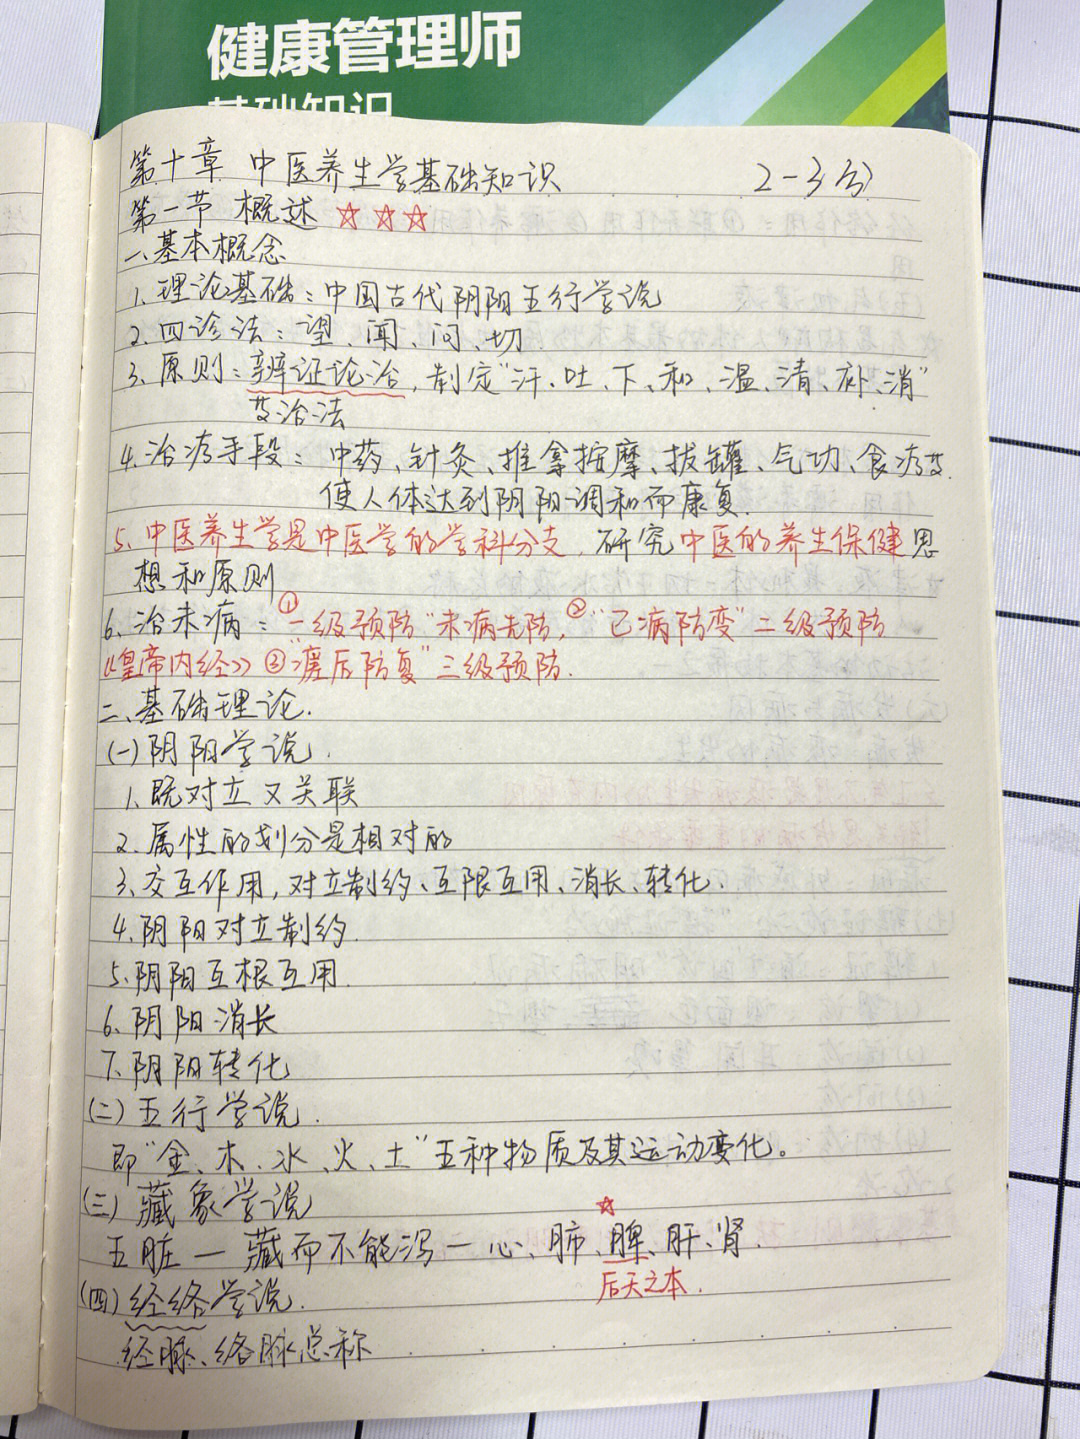 健康管理师
基础知识
第十章 中医养生学基础知识 2-3分
第一节 概述 ☆☆☆
一、基本概念
1、理论基础:中国古代阴阳五行学说
2、四诊法:望、闻、问、切
3、原则:辨证论治,制定"汗、吐、下、和、温、清、补、消"
等治法
4、治疗手段:中药、针灸、推拿按摩、拔罐、气功、食疗等
使人体达到阴阳调和而康复.
5、中医养生学是中医学的学科分支,研究中医的养生保健思
想和原则
6、治未病:①一级预防"未病先防,②"已病防变"二级预防
《皇帝内经》③"瘥后防复"三级预防.
二、基础理论.
(一)阴阳学说.
1、既对立又关联
2、属性的划分是相对的
3、交互作用,对立制约、互限互用、消长、转化.
4、阴阳对立制约.
5、阴阳互根互用.
6、阴阳消长
7、阴阳转化
(二)五行学说.
即"金、木、水、火、土"五种物质及其运动变化。
(三)藏象学说
☆
五脏一藏而不能泻一心、肺、脾、肝、肾.
后天之本.
(四)经络学说.
经脉、络脉总称